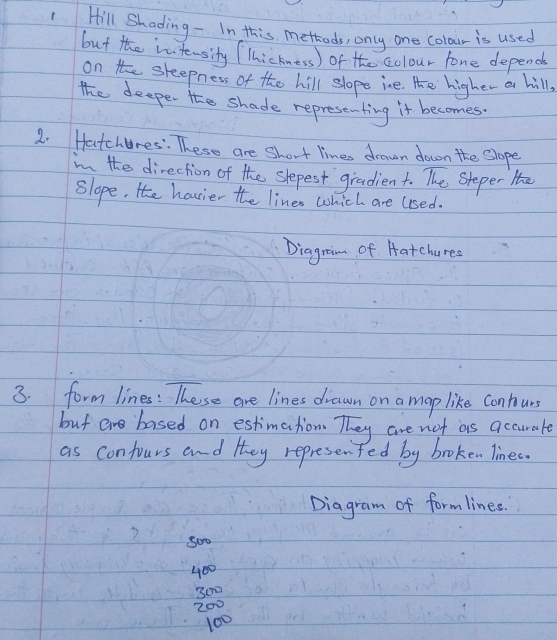 1 Hill Shading - In this methods, only one colour is used
but the intensity (thickness) of the colour tone depends
on the steepness of the hill slope i.e. the higher a hill,
the deeper the shade representing it becomes.
2. Hatchures: These are short lines drawn down the slope
in the direction of the stepest gradient. The steper the
slope, the havier the lines which are used.
Diagram of Hatchures
3. form lines: These are lines drawn on a map like contours
but are based on estimation. They are not as accurate
as contours and they represented by broken lines.
Diagram of formlines.
500
400
300
200
100